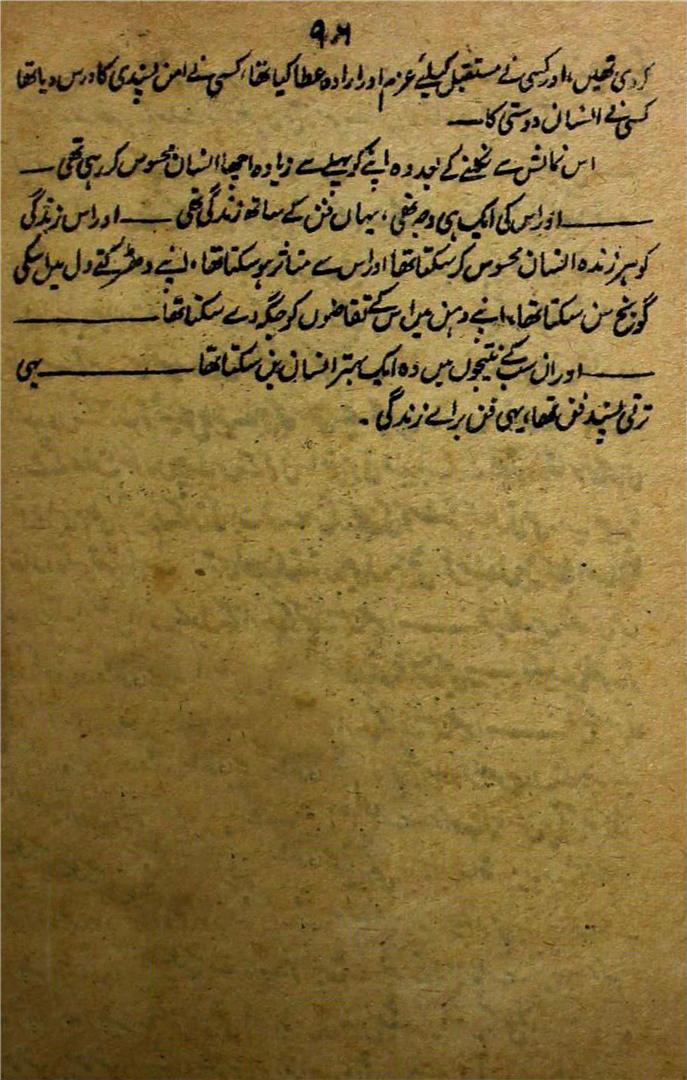 ۹۶
کردی تھیں، اور کسی نے مستقبل کیلئے عزم اور ارادہ عطا کیا تھا، کسی نے امن پسندی کا درس دیا تھا
کسی نے انسان دوستی کا——
اس نمائش سے نکلنے کے بعد وہ اپنے کو پہلے سے زیادہ اچھا انسان محسوس کر رہی تھی——
——اور اس کی ایک ہی وجہ تھی، یہاں فن کے ساتھ زندگی تھی——اور اس زندگی
کو ہر زندہ انسان محسوس کر سکتا تھا اور اس سے متاثر ہو سکتا تھا، اپنے دھڑکتے دل میں اسکی
گونج سن سکتا تھا، اپنے ذہن میں اس کے تقاضوں کو جگہ دے سکتا تھا——
——اور ان سب کے نتیجوں میں وہ ایک بہتر انسان بن سکتا تھا——یہی
ترقی پسند فن تھا، یہی فن برائے زندگی۔